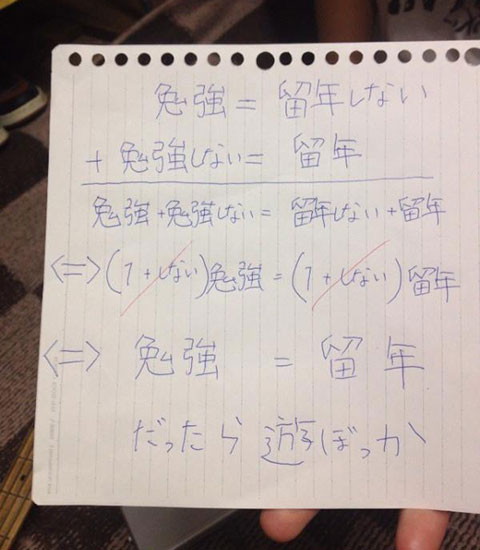 勉強 = 留年しない
+ 勉強しない = 留年
勉強+勉強しない = 留年しない+留年
⇔ (1+しない)勉強 = (1+しない)留年
⇔ 勉強 = 留年
だったら遊ぼっか